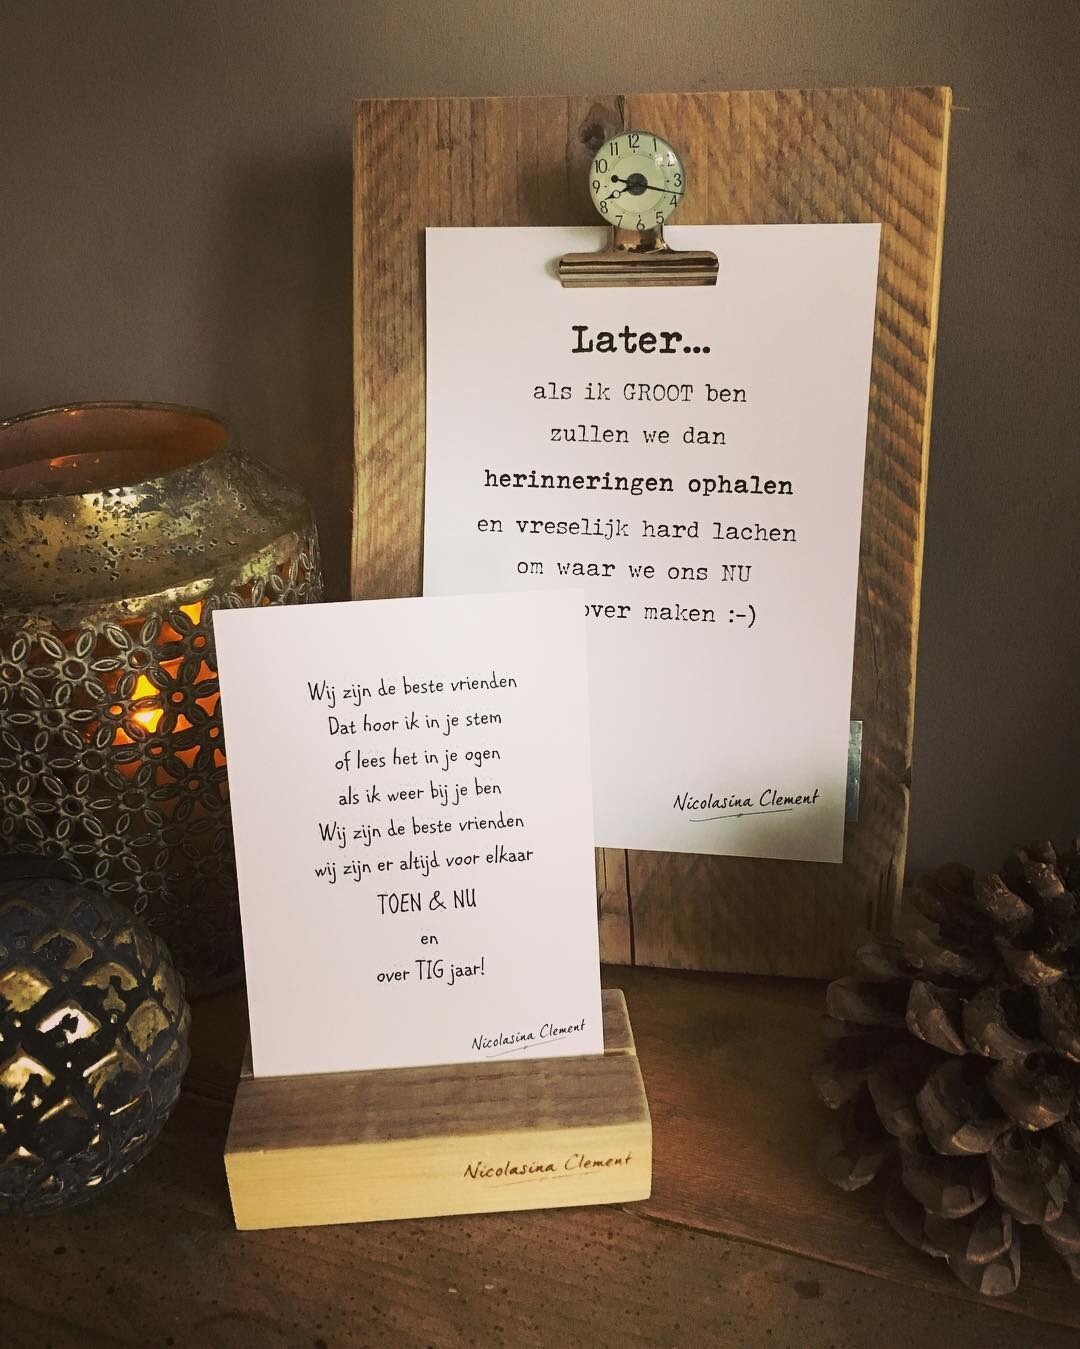 12
1
2
3
4
5
6
7
8
9
10
11
Later...
als ik GROOT ben
zullen we dan
herinneringen ophalen
en vreselijk hard lachen
om waar we ons NU
over maken :-)
Nicolasina Clement
Wij zijn de beste vrienden
Dat hoor ik in je stem
of lees het in je ogen
als ik weer bij je ben
Wij zijn de beste vrienden
wij zijn er altijd voor elkaar
TOEN & NU
en
over TIG jaar!
Nicolasina Clement
Nicolasina Clement